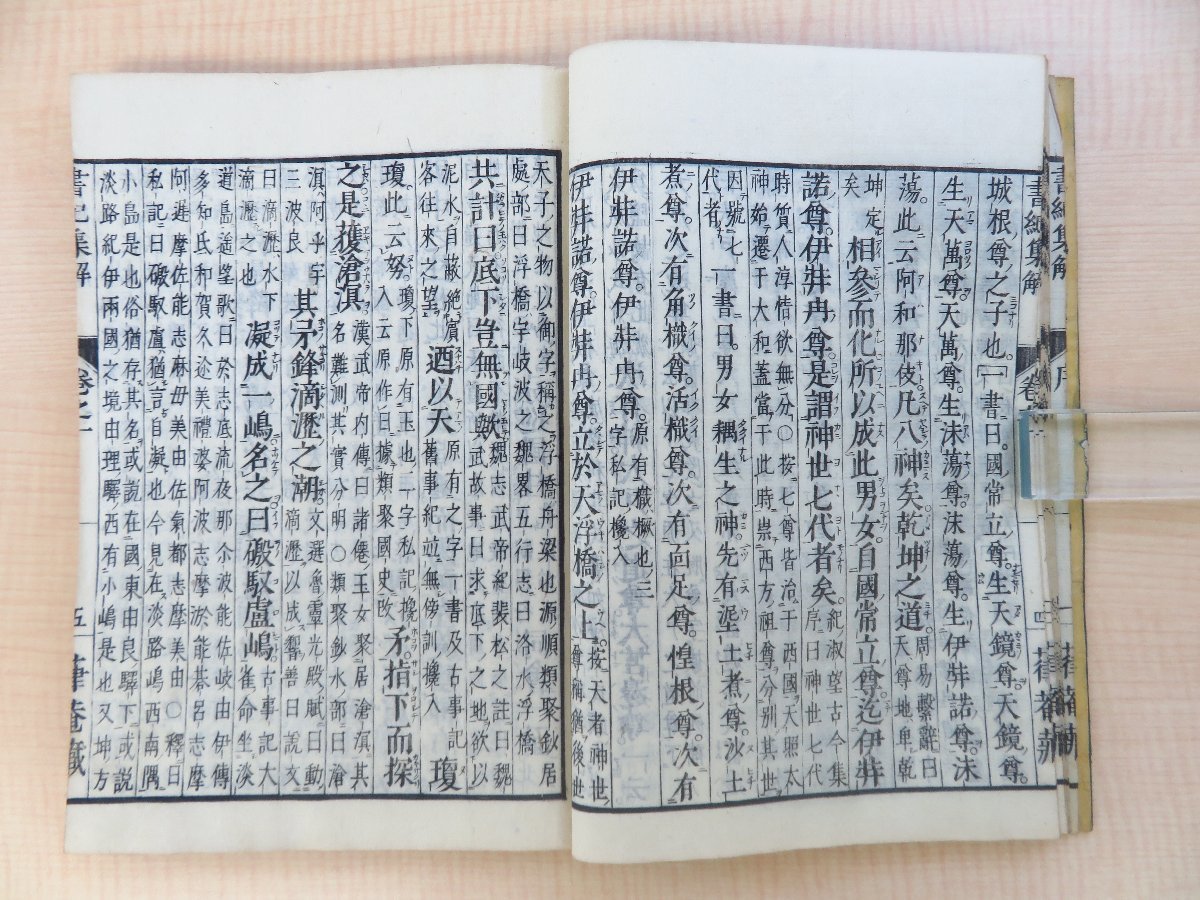 城根尊之子也。一書曰。國常立尊。生天鏡尊。天鏡尊。
生天萬尊。天萬尊。生沫蕩尊。沫蕩尊。生伊弉諾尊。沫
蕩。此云阿和那伎。凡八神矣。乾坤之道。周易繋辭曰天尊地卑乾
坤定矣相參而化。所以成此男女。自國常立尊。迄伊弉
諾尊。伊弉冉尊。是謂神世七代者矣。紀淑望古今集序曰神世七代
時質人淳情欲無分〇按七尊皆治于西國天照太
神始遷于大和蓋當于此時崇西方祖尊分別其世
因號七代者一書曰。男女耦生之神。先有埿土煮尊。沙土
煮尊。次有角樴尊。活樴尊。次有面足尊。惶根尊。次有
伊弉諾尊。伊弉冉尊。原有樴橛也三字私記攙入
伊弉諾尊。伊弉冉尊。立於天浮橋之上。按天者神世尊稱猶後世
天子之物以御字稱之浮橋舟梁也源順類聚鈔居
處部曰浮橋字岐波之魏畧五行志曰洛水浮橋
共計曰。底下豈無國歟。魏志武帝紀裴松之註曰魏武故事曰求底下之地欲以
泥水自蔽絶賓客往來之望廼以天原有之字一書及古事記舊事紀並無傍訓攙入瓊
瓊。此云努。入云原作曰據類聚國史改矛指下而探
之。是獲滄溟。漢武帝内傳曰諸僊玉女聚居滄溟其名難測其實分明〇類聚鈔水部曰滄
溟阿乎宇三波良其矛鋒滴瀝之潮。文選魯靈光殿賦曰動滴瀝以成響善曰說文
曰滴瀝水下滴瀝之也凝成一嶋。名之曰磤馭盧嶋。古事記大雀命坐淡
道島遥望歌曰於志弖流夜那尒波能佐岐由伊傳
多知氐和賀久邇美禮婆阿波志摩淤能碁呂志摩
阿遅摩佐能志麻母美由佐氣都志摩美由〇釋曰
私記曰磤馭盧猶言自凝也今見在淡路嶋西南隅
小島是也俗猶存其名或說在今國東由良驛下或說
淡路紀伊兩國之境由理驛西有小嶋是也又坤方
書紀集解
卷之一
五
葎菴藏